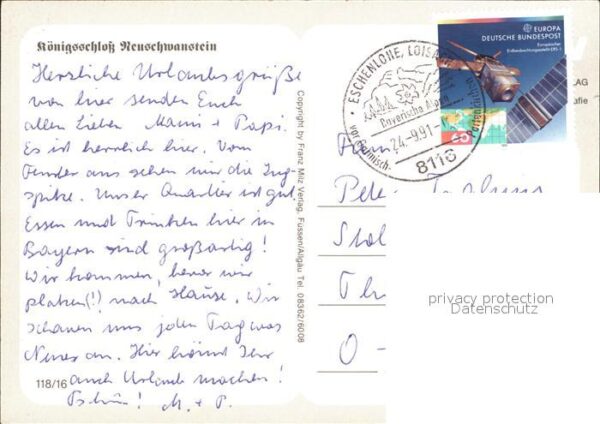 Königsschloß Neuschwanstein
Herzliche Urlaubsgrüße
von hier senden Euch
allen Lieben Mami + Papi.
Es ist herrlich hier. Vom
Fenster aus sehen wir die Zug-
spitze. Unser Quartier ist gut.
Essen und Trinken hier in
Bayern sind großartig!
Wir kommen, bevor wir
platzen (!) nach Hause. Wir
schauen uns jeden Tag was
Neues an. Hier könnt Ihr
auch Urlaub machen!
Tschüß! M. + P.
118/16
Copyright by Franz Milz Verlag, Füssen/Allgäu Tel. 08362/6008
EUROPA
DEUTSCHE BUNDESPOST
Europäischer
Erdbeobachtungssatellit ERS-1
ESCHENLOHE, LOISACHTAL
Bayerische Alpen
24.-9.91-
vor Garmisch-
8116
AG
afie
Peter
O -
privacy protection
Datenschutz